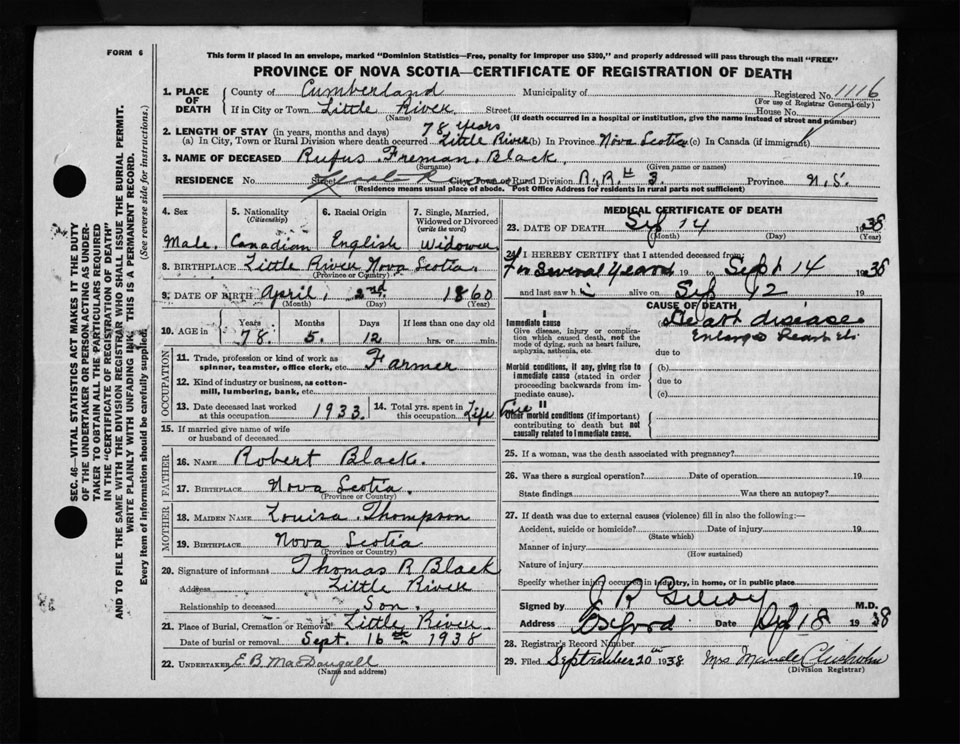 FORM 6
This form if placed in an envelope, marked "Dominion Statistics—Free, penalty for improper use $300," and properly addressed will pass through the mail "FREE"
PROVINCE OF NOVA SCOTIA—CERTIFICATE OF REGISTRATION OF DEATH
SEC. 46—VITAL STATISTICS ACT MAKES IT THE DUTY
OF THE UNDERTAKER OR PERSON ACTING AS UNDER-
TAKER TO OBTAIN ALL THE PARTICULARS REQUIRED
IN THE "CERTIFICATE OF REGISTRATION OF DEATH"
AND TO FILE THE SAME WITH THE DIVISION REGISTRAR WHO SHALL ISSUE THE BURIAL PERMIT.
WRITE PLAINLY WITH UNFADING INK. THIS IS A PERMANENT RECORD.
Every item of information should be carefully supplied. (See reverse side for instructions.)
1. PLACE OF DEATH County of Cumberland Municipality of Registered No. 1116
(For use of Registrar General only)
If in City or Town Little River Street House No.
(Name) (If death occurred in a hospital or institution, give the name instead of street and number)
2. LENGTH OF STAY (in years, months and days) 78 years
(a) In City, Town or Rural Division where death occurred Little River (b) In Province Nova Scotia (c) In Canada (if immigrant)
3. NAME OF DECEASED Rufus Freman Black.
(Surname) (Given name or names)
RESIDENCE No Street City, Town or Rural Division R.R. # 3. Province N.S.
(Residence means usual place of abode. Post Office Address for residents in rural parts not sufficient)
4. Sex 5. Nationality (Citizenship) 6. Racial Origin 7. Single, Married, Widowed or Divorced (write the word)
Male. Canadian English Widower
8. BIRTHPLACE Little River Nova Scotia.
(Province or Country)
9. DATE OF BIRTH April, 2nd 1860
(Month) (Day) (Year)
10. AGE in Years Months Days If less than one day
78. 5. 12 hrs. or min.
OCCUPATION
11. Trade, profession or kind of work as spinner, teamster, office clerk, etc. Farmer
12. Kind of industry or business, as cotton-mill, lumbering, bank, etc.
13. Date deceased last worked at this occupation 1933. 14. Total yrs. spent in this occupation Life Time
15. If married give name of wife or husband of deceased
FATHER
16. NAME Robert Black.
17. BIRTHPLACE Nova Scotia.
(Province or Country)
MOTHER
18. MAIDEN NAME Louisa Thompson
19. BIRTHPLACE Nova Scotia
(Province or Country)
20. Signature of informant Thomas R Black
Address Little River
Relationship to deceased Son.
21. Place of Burial, Cremation or Removal Little River
Date of burial or removal Sept. 16th 1938
22. UNDERTAKER E.B. MacDougall
(Name and address)
MEDICAL CERTIFICATE OF DEATH
23. DATE OF DEATH Sep 14 1938
(Month) (Day) (Year)
24. I HEREBY CERTIFY that I attended deceased from:
For Several Years 19 to Sept 14 1938
and last saw h i alive on Sep 12 19
CAUSE OF DEATH
I
Immediate cause
Give disease, injury or complication which caused death, not the mode of dying, such as heart failure, asphyxia, asthenia, etc.
(a) Heart disease
Enlarged Heart
due to
Morbid conditions, if any, giving rise to immediate cause (stated in order proceeding backwards from immediate cause).
(b)
due to
(c)
II
Other morbid conditions (if important) contributing to death but not causally related to immediate cause.
25. If a woman, was the death associated with pregnancy?
26. Was there a surgical operation? Date of operation 19
State findings Was there an autopsy?
27. If death was due to external causes (violence) fill in also the following:—
Accident, suicide or homicide? Date of injury 19
(State which)
Manner of injury
(How sustained)
Nature of injury
Specify whether injury occurred in industry, in home, or in public place
Signed by J R Gilroy M.D.
Address Oxford Date Sept 18 1938
28. Registrar's Record Number
29. Filed September 20th 1938 Mrs Maude Chisholm
(Division Registrar)